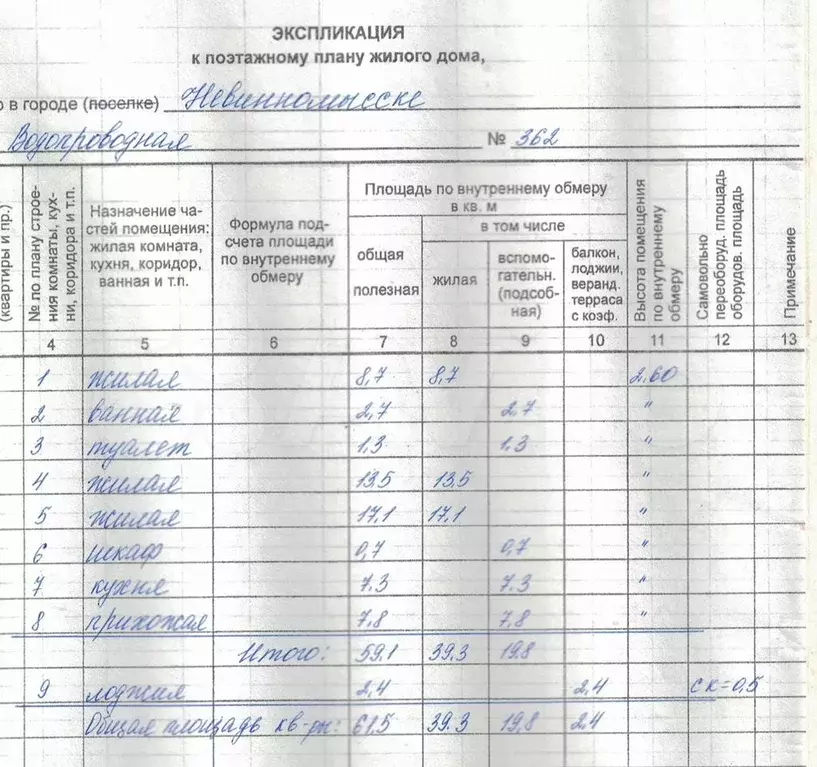 ЭКСПЛИКАЦИЯ
к поэтажному плану жилого дома,
о в городе (поселке) Невинномысске
Водопроводная № 362
(квартиры и пр.)
№ по плану строения комнаты, кухни, коридора и т.п.
Назначение ча-
стей помещения:
жилая комната,
кухня, коридор,
ванная и т.п.
Формула под-
счета площади
по внутреннему
обмеру
Площадь по внутреннему обмеру
в кв. м
общая
полезная
в том числе
жилая
вспомо-
гательн.
(подсоб-
ная)
балкон,
лоджии,
веранд.
терраса
с коэф.
Высота помещения
по внутреннему
обмеру
Самовольно
переоборуд. площадь
оборудов. площадь
Примечание
4 5 6 7 8 9 10 11 12 13
1 жилая 8,7 8,7 2.60
2 ванная 2,7 2.7 "
3 туалет 1,3 1.3 "
4 жилая 13,5 13,5 "
5 жилая 17,1 17,1 "
6 шкаф 0,7 0,7 "
7 кухня 7.3 7.3 "
8 прихожая 7,8 7,8 "
Итого: 59.1 39.3 19.8
9 лоджия 2,4 2,4 с к=0,5
Общая площадь кв-ры: 61,5 39.3 19,8 2.4